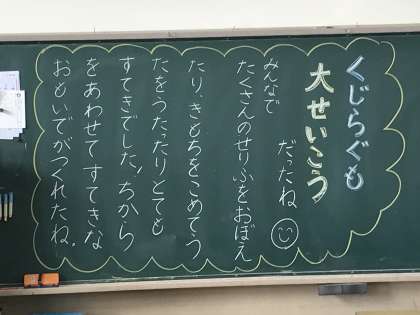 くじらぐも
大せいこう
だったね
みんなで
たくさんのせりふをおぼえ
たり、きもちをこめてう
たをうたったりとても
すてきでした！ちから
をあわせてすてきな
おもいでがつくれたね。